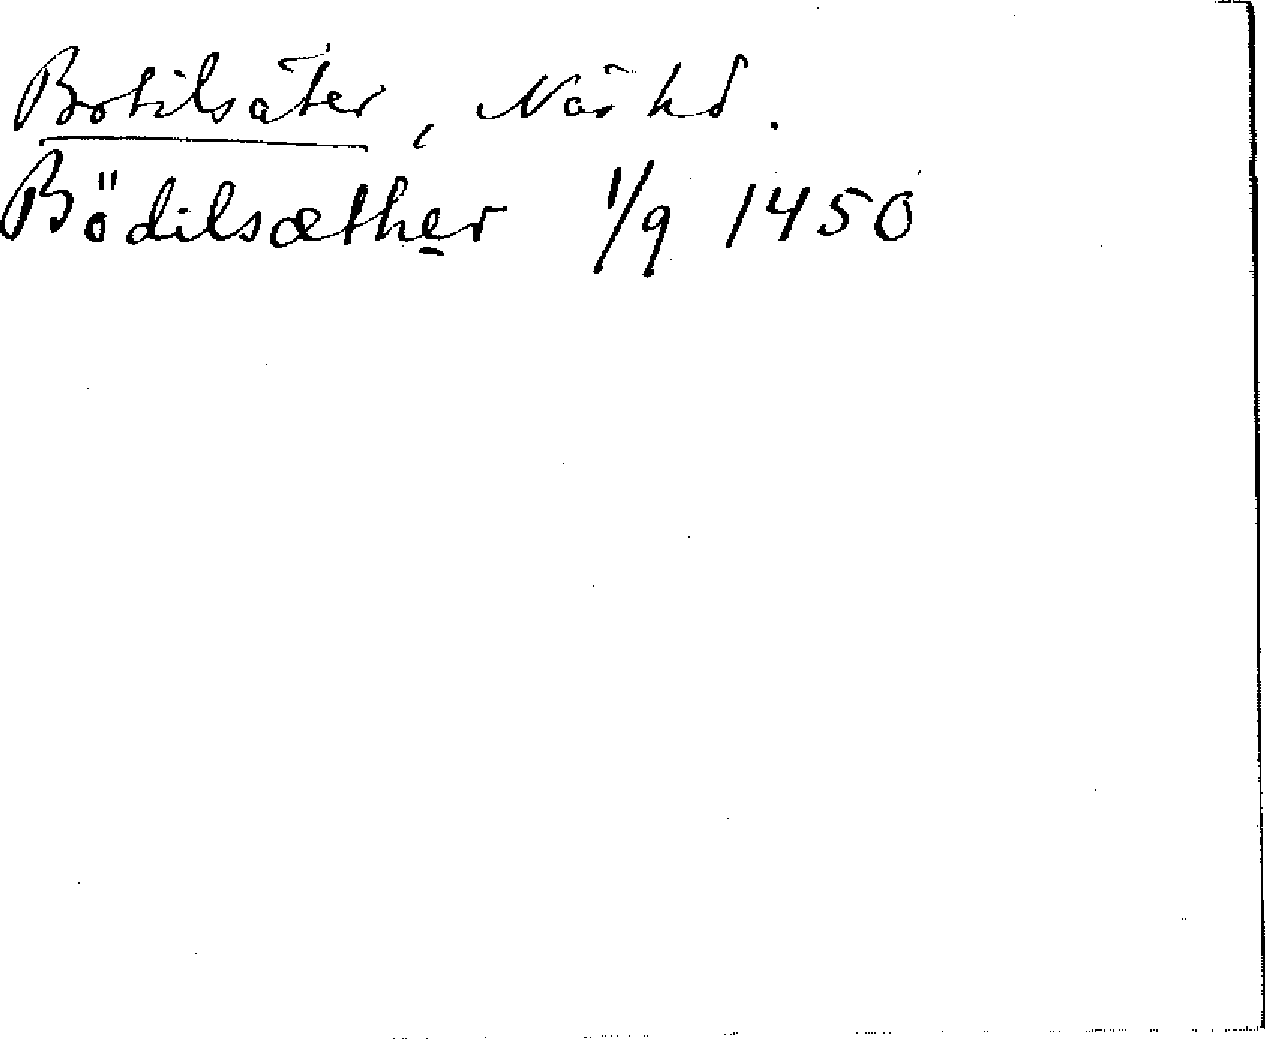 Botilsäter, Näs hd.
Bödilsæther 1/9 1450